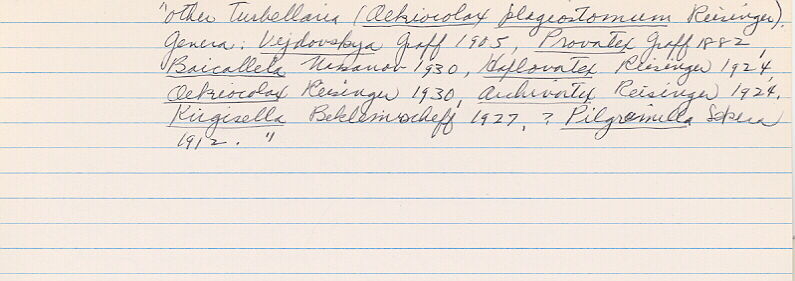 "other Turbellaria (Oekiocolax plagiostomum Reisinger).
Genera: Vejdovskya Graff 1905, Provortex Graff 1882,
Baicallela Nasonov 1930, Haplovortex Reisinger 1924,
Oekiocolax Reisinger 1930, Archivortex Reisinger 1924,
Kirgisella Beklemischeff 1927, ? Pilgramilla Sekera
1912. "